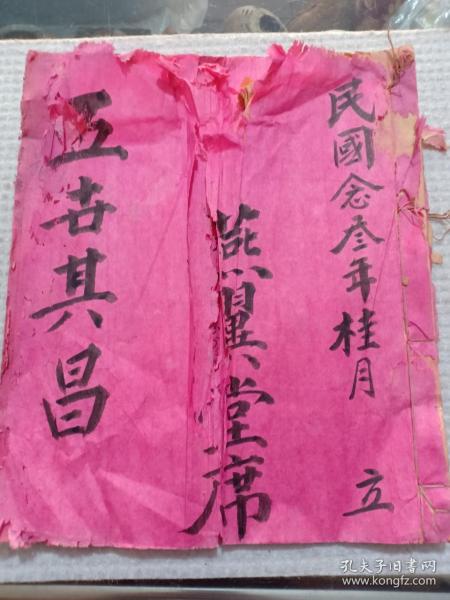 民國念叁年桂月
立
燕翼堂席
五世其昌
孔夫子旧书网
www.kongfz.com